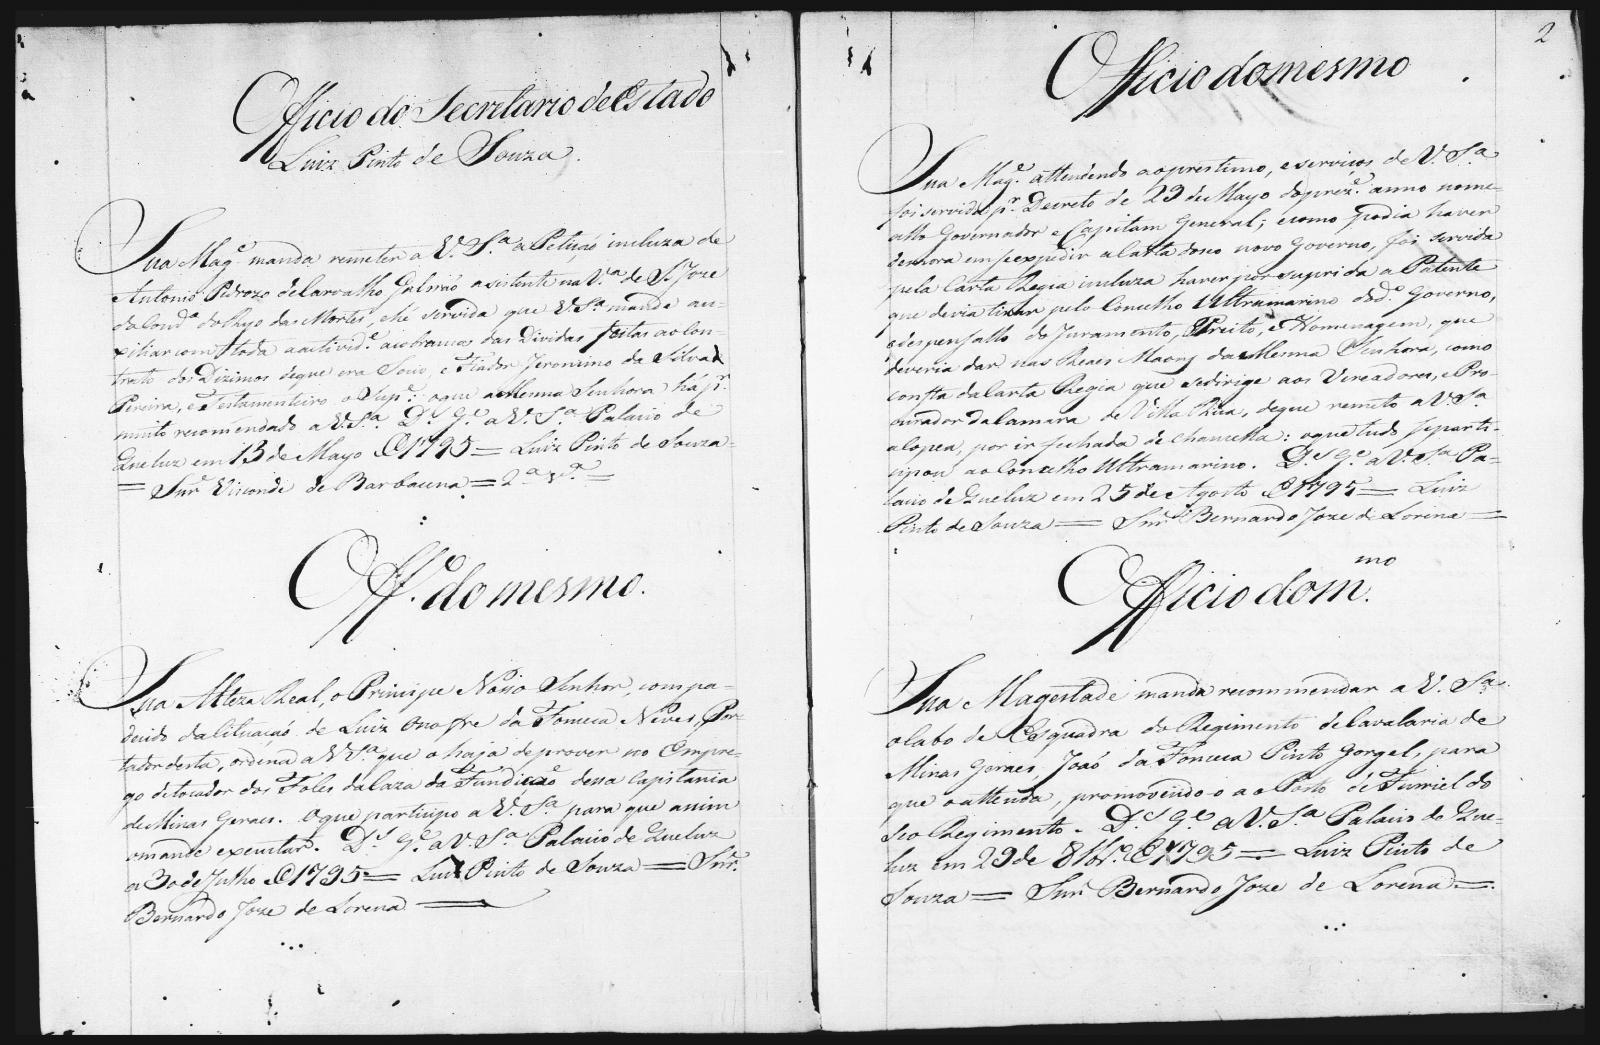 Officio do Secretario de Estado
Luiz Pinto de Souza.
Sua Mag.e manda remeter a V. S.a a Petiçaõ incluza de
Antonio Pedrozo de Carvalho Galvaõ assistente na V.a de S. Joze
da Com.ca do Ryo das Mortes, e hé servida que V. S.a mande au-
xiliar com toda a activid.e a cobrança das Dividas feitas ao Con-
trato dos Dizimos de que era Socio, e Fiador Jeronimo da Silva
Pereira, e Testamenteiro o Sup.e: o que a Mesma Senhora há p.r
muito recomendado a V. S.a. D.s G.e a V. S.a Palacio de
Queluz em 13 de Mayo de 1795 = Luiz Pinto de Souza =
= Snr. Visconde de Barbacena = 2.a v.a =
Off.o do mesmo.
Sua Alteza Real, o Principe Nosso Senhor, compa-
decido da situaçaõ de Luiz Onofre da Fonceca Neves, Por-
tador desta, ordena a V. S.a que o haja de prover no Empre-
go de tocador dos Foles da Caza da Fundiçaõ dessa Capitania
de Minas Geraes. O que participo a V. S.a para que assim
o mande executar. D.s G.e a V. S.a Palacio de Queluz
a 30 de Julho de 1795 = Luiz Pinto de Souza = Snr.
Bernardo Joze de Lorena =
2
Officio do mesmo
Sua Mag.e attendendo ao prestimo, e serviços de V. S.a
foi servida p.r Decreto de 29 de Mayo do prez.e anno nome-
allo Governador e Capitam General; e como podia haver
demora em se expedir a Carta do seo novo Governo, foi servida
pela Carta Regia incluza haver por suprida a Patente
que devia tirar pelo Concelho Ultramarino do d.o Governo,
e despensallo do Juramento, Preito, e Homenagem, que
deveria dar nas Reaes Maons da Mesma Senhora, como
consta da Carta Regia que se dirige aos Vereadores, e Pro-
curador da Camara de Villa Rica, de que remeto a V. S.a
a Copea, por ir fechada de chancella: o que tudo se parti-
cipou ao Concelho Ultramarino. D.s G.e a V. S.a Pa-
lacio de Queluz em 25 de Agosto de 1795 = Luiz
Pinto de Souza = Snr. Bernardo Joze de Lorena =
Officio do m.mo
Sua Magestade manda recommendar a V. S.a
o Cabo de Esquadra do Regimento de Cavalaria de
Minas Geraes, Joaõ da Fonceca Pinto Gorgel, para
que o attenda, promovendo-o ao Posto de Furriel do
seo Regimento. D.s G.e a V. S.a Palacio de Que-
luz em 29 de 8br.o de 1795 = Luiz Pinto de
Souza = Snr. Bernardo Joze de Lorena =